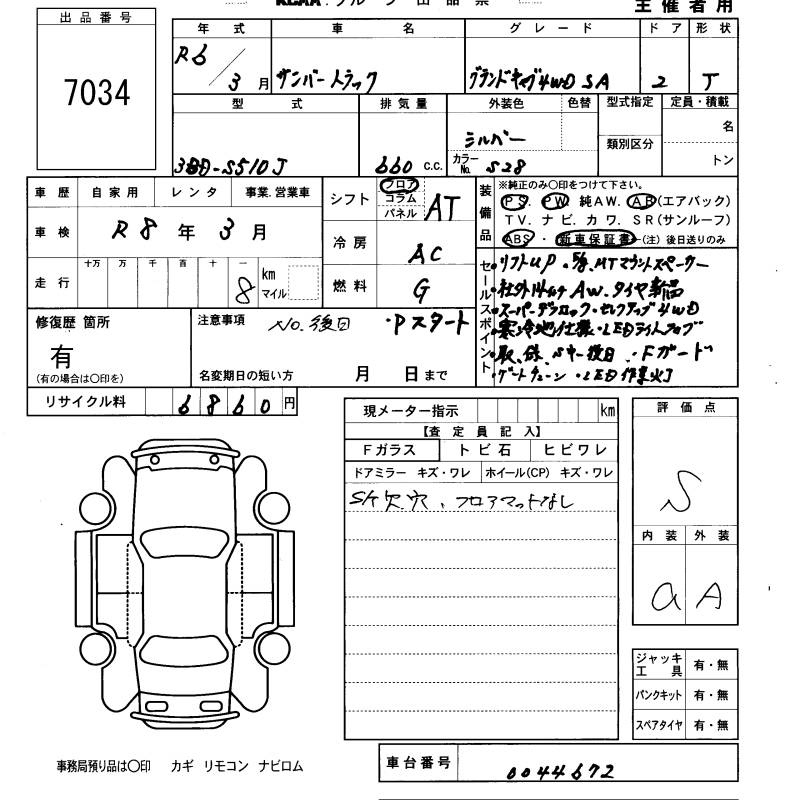 KCAA.グループ出品票
主催者用
出品番号
7034
年式 車名 グレード ドア 形状
R6/3月 サンバートラック グランドキャブ4WD SA 2 T
型式 排気量 外装色 色替 型式指定 定員・積載
類別区分
3BD-S510J 660 c.c. シルバー 名
カラーNo. S28 トン
車歴 自家用 レンタ 事業.営業車
車検 R8年3月
走行 十万 万 千 百 十 一
8 km
マイル
シフト フロア コラム パネル AT
冷房 AC
燃料 G
装備品
※純正のみ〇印をつけて下さい。
PS. PW 純AW. AB(エアバック)
TV. ナビ. カワ. SR(サンルーフ)
ABS ・ 新車保証書 (注) 後日送りのみ
セールスポイント
・リフトUP ・5/8.MTマウントスペーサー
・社外14インチAW.タイヤ新品
・スーパーデフロック・セレクティブ4WD
・寒冷地仕様・LEDライトフォグ
・取、保、Sキー後日・Fガード
・ゲートチェーン・LED作業灯
修復歴 箇所
有
(有の場合は〇印を)
注意事項 No.後日 ・Pスタート
名変期日の短い方 月 日まで
リサイクル料 6860円
現メーター指示 km
【査定員記入】
Fガラス トビ石 ヒビワレ
ドアミラー キズ・ワレ ホイール(CP) キズ・ワレ
S欠穴、フロアマットなし
評価点
S
内装 外装
a A
ジャッキ工具 有・無
パンクキット 有・無
スペアタイヤ 有・無
事務局預り品は〇印 カギ リモコン ナビロム
車台番号 0044672